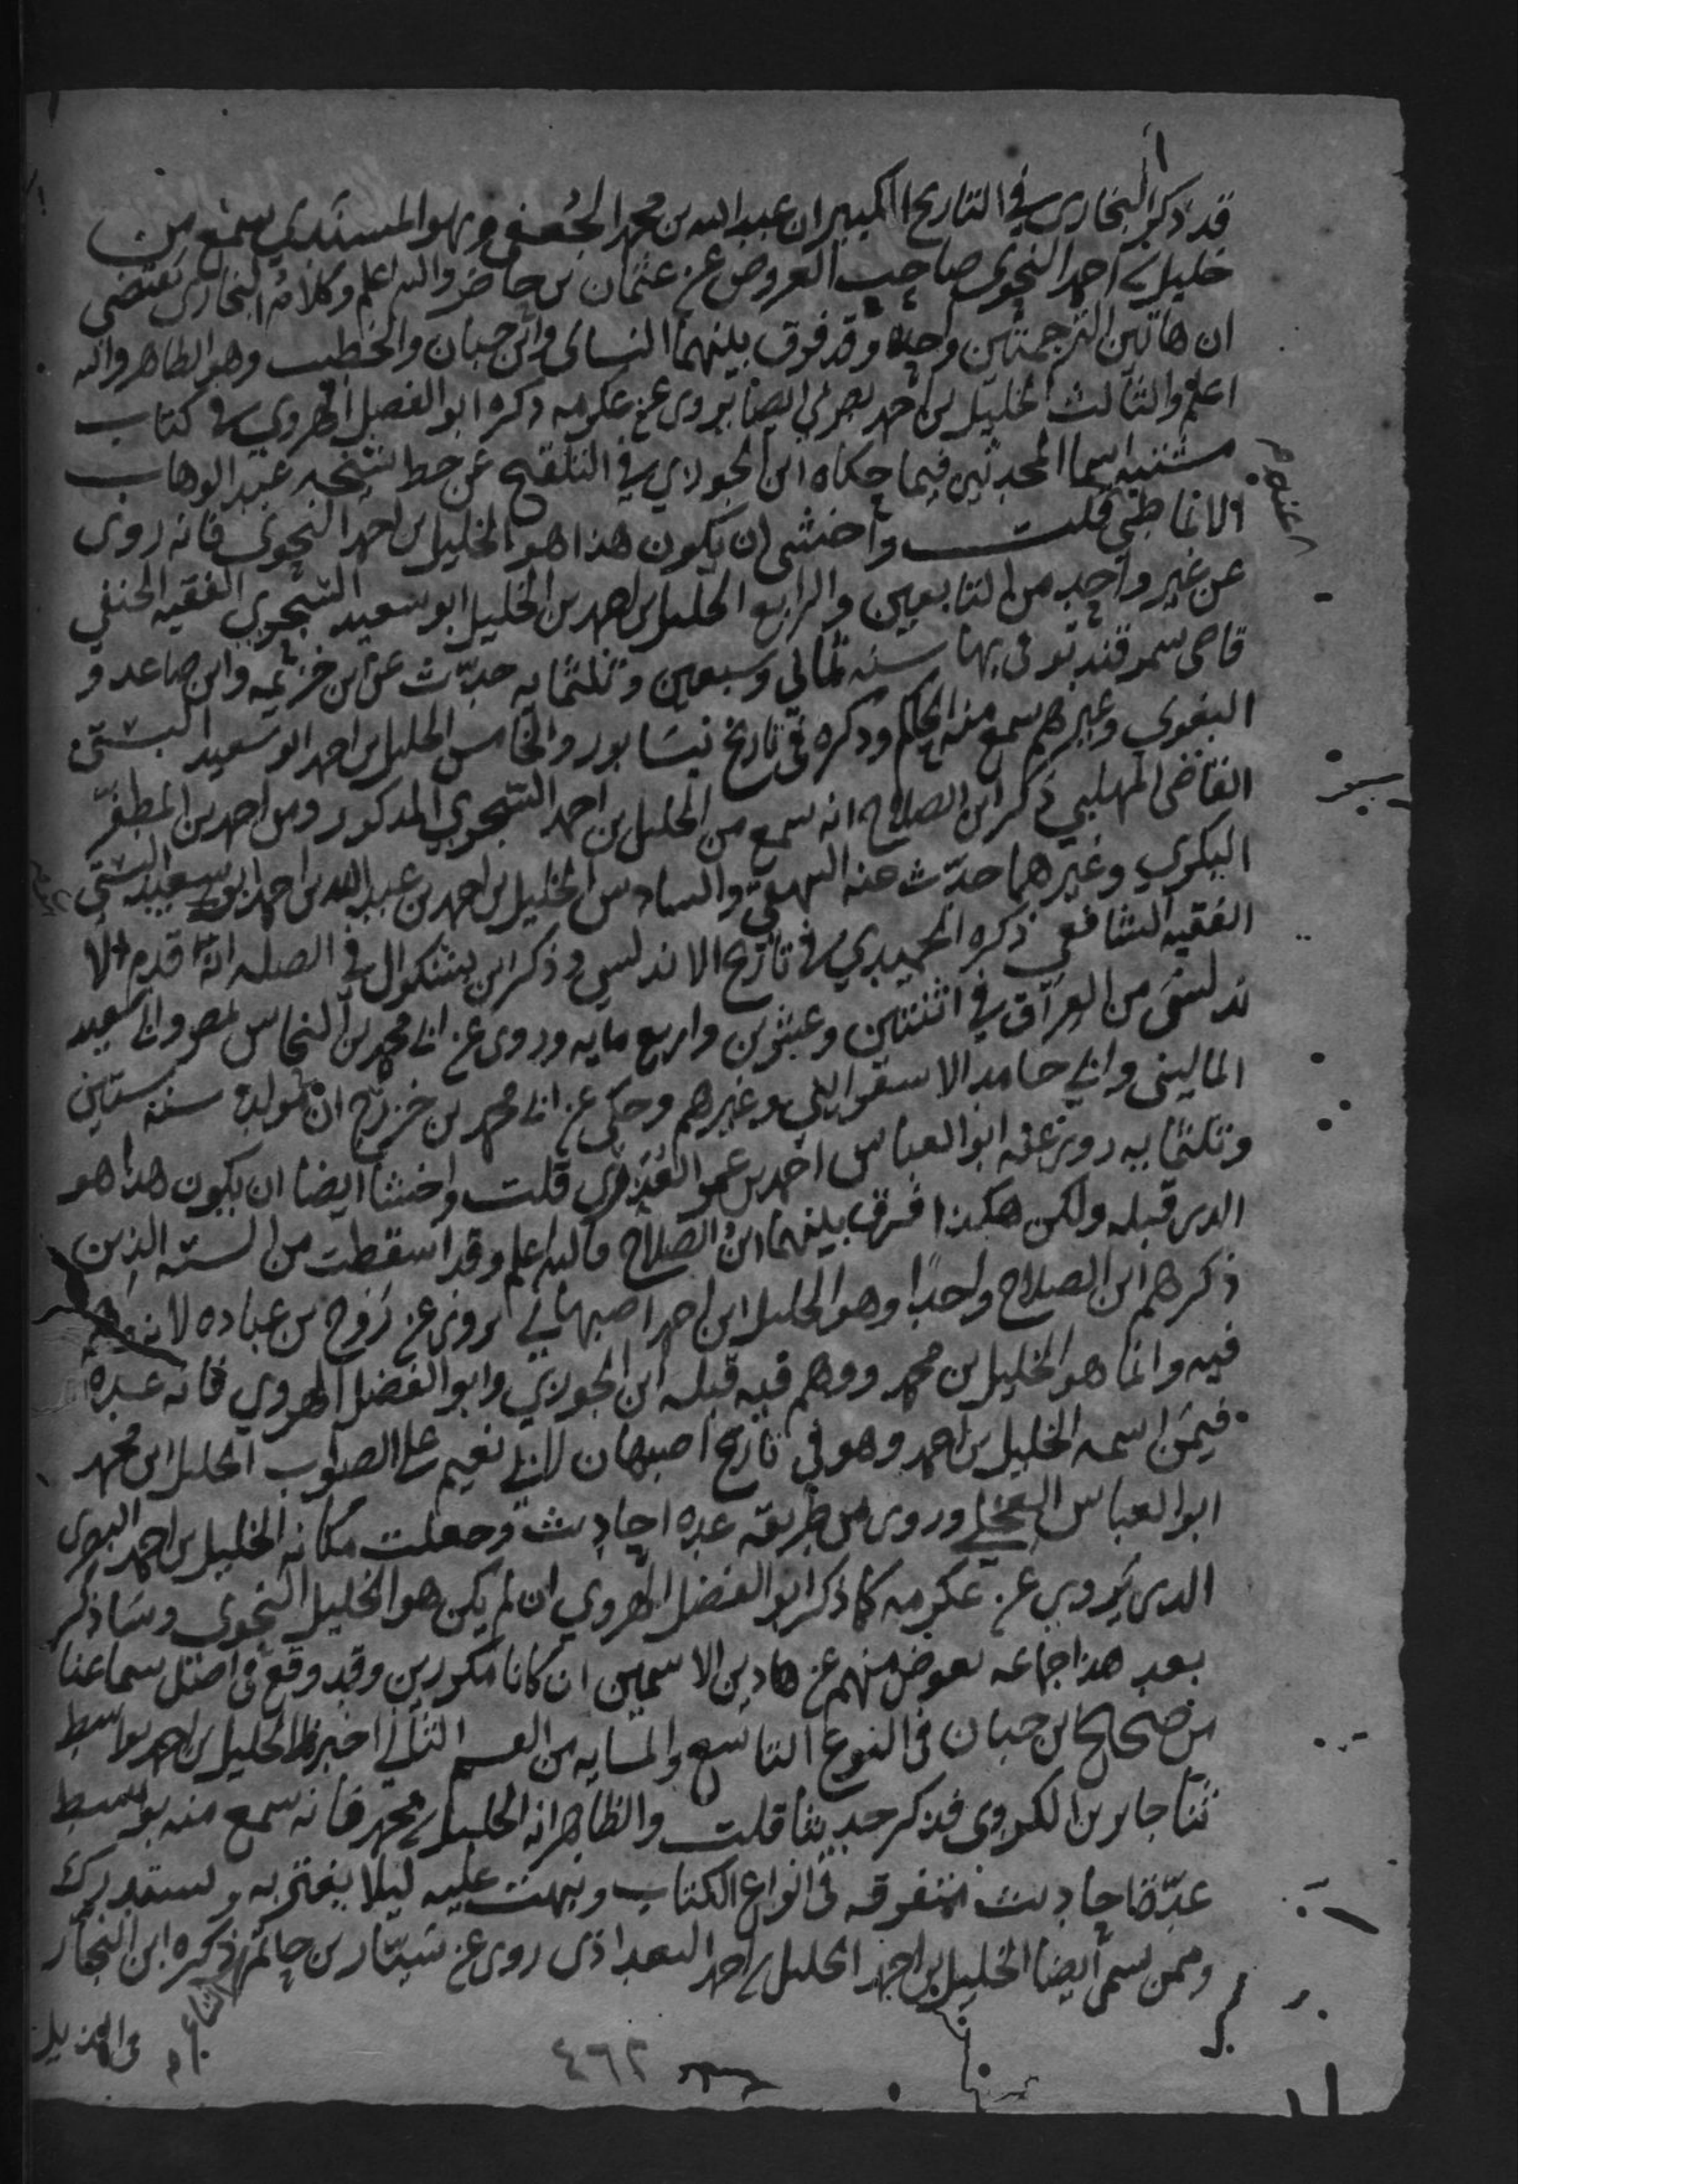 قد ذكر البخارى في التاريخ الكبير ان عبد الله بن محمد الجُعفي وهو المسندي سمع من
خليل بن احمد النحوى صاحب العروض عن عثمان بن حاضر والله اعلم وكلام البخارى يقتضى
ان هاتين الترجمتين واحده وقد فرق بينهما النسائى وابن حبان والخطيب وهو الظاهر والله
اعلم والثالث الخليل بن احمد بصرى ايضا يروى عن عكرمه ذكره ابو الفضل الهروي في كتاب
مشتبه اسما المحدثين فيما حكاه ابن الجوزي في التلقيح عن خط شيخه عبد الوهاب
الانماطي قلت واخشى ان يكون هذا هو الخليل بن احمد النحوى فانه روى
عن غير واحد من التابعين والرابع الخليل بن احمد بن الخليل ابو سعيد السجزي الفقيه الحنفي
قاضى سمرقند توفى بها سنه ثماني وسبعين وثلثمايه حدّث عن ابن خزيمه وابن صاعد و
البغوي وغيرهم سمع منه الحاكم وذكره في تاريخ نيسابور والخامس الخليل بن احمد ابو سعيد البستى
القاضى المهلبي ذكر ابن الصلاح انه سمع من الخليل بن احمد السجزي المذكور ومن احمد بن المظفر
البكري وغيرهما حدّث عنه البيهقي والسادس الخليل بن احمد بن عبد الله بن احمد ابو سعيد البستي
الفقيه الشافعي ذكره الحميدي في تاريخ الاندلس وذكر ابن بشكوال في الصله انه قدم الا
ندلس من العراق في اثنتين وعشرين واربع مايه وروى عن ابي محمد بن النحاس بمصر وابي سعيد
الماليني وابي حامد الاسفراييني وغيرهم وحكى عن ابي محمد بن خزرج ان مولده سنه ستين
وثلثمايه روى عنه ابو العباس احمد بن عمر العُذري قلت واخشا ايضا ان يكون هذا هو
الذى قبله ولكن هكذا فرق بينهما ابنُ الصلاح فالله اعلم وقد اسقطت من السته الذين
ذكرهم ابن الصلاح واحدًا وهو الخليل ابن احمد اصبهاني يروى عن رَوح بن عباده لانه وهم
فيه وانما هو الخليل بن محمد ووهم فيه قبله ابن الجوزي وابو الفضل الهروي فانه عده
فيمَن اسمه الخليل بن احمد وهو في تاريخ اصبهان لابي نعيم على الصواب الخليل ابن محمد
ابو العباس العجلي وروى من طريقه عده احاديث وجعلت مكانه الخليل بن احمد البصرى
الذى يَروي عن عكرمه كما ذكر ابو الفضل الهروي ان لم يكن هو الخليل النحوى وسَاذكر
بعد هذا جماعه يعوض منهم عن هاذين الاسمين ان كانا مكررين وقد وقع في اصل سماعنا
من صحيح ابن حبان في النوع التاسع والمايه من القسم الثاني اخبرنا الخليل بن احمد بواسط
ثنا جابر بن الكردى فذكر حديثا قلت والظاهر انه الخليل بن محمد فانه سمع منه بواسط
عدّة احاديث متفرقه في انواع الكتاب ونبهت عليه ليلا يغتر به ويستدرك
وممن سمى ايضا الخليل بن احمد الخليل بن احمد البغداذى روى عن سَيّار بن حاتم ذكره ابن النجار
فى الذيل
٤٦٢